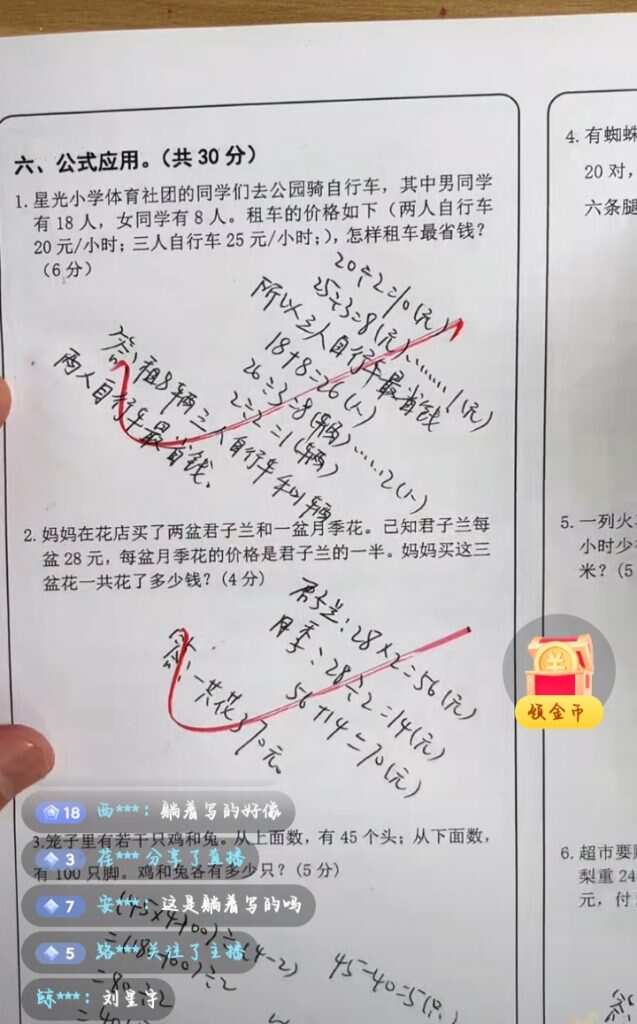 六、公式应用。（共30分）
1. 星光小学体育社团的同学们去公园骑自行车，其中男同学
有18人，女同学有8人。租车的价格如下（两人自行车
20元/小时；三人自行车25元/小时；），怎样租车最省钱？
（6分）
20÷2=10(元)
25÷3=8(元)……1(元)
所以三人自行车最省钱
18+8=26(人)
26÷3=8(辆)……2(人)
2÷2=1(辆)
答：租8辆三人自行车和1辆
两人自行车最省钱.
2. 妈妈在花店买了两盆君子兰和一盆月季花。已知君子兰每
盆28元，每盆月季花的价格是君子兰的一半。妈妈买这三
盆花一共花了多少钱？（4分）
君子兰：28×2=56(元)
月季：28÷2=14(元)
56+14=70(元)
答：一共花70元.
领金币
18 西***：躺着写的好像
3.笼子里有若干只鸡和兔。从上面数，有45个头；从下面数，
3 荏***分享了直播
有100只脚。鸡和兔各有多少只？（5分）
7 安***：这是躺着写的吗
(45×4-100)÷(4-2)
5 路***关注了主播
=80÷2
45-40=5(只)
鲸***：刘星宇
4. 有蜘蛛
20对，
六条腿
5. 一列火
小时少
米？（5
6. 超市要
梨重24
元，付